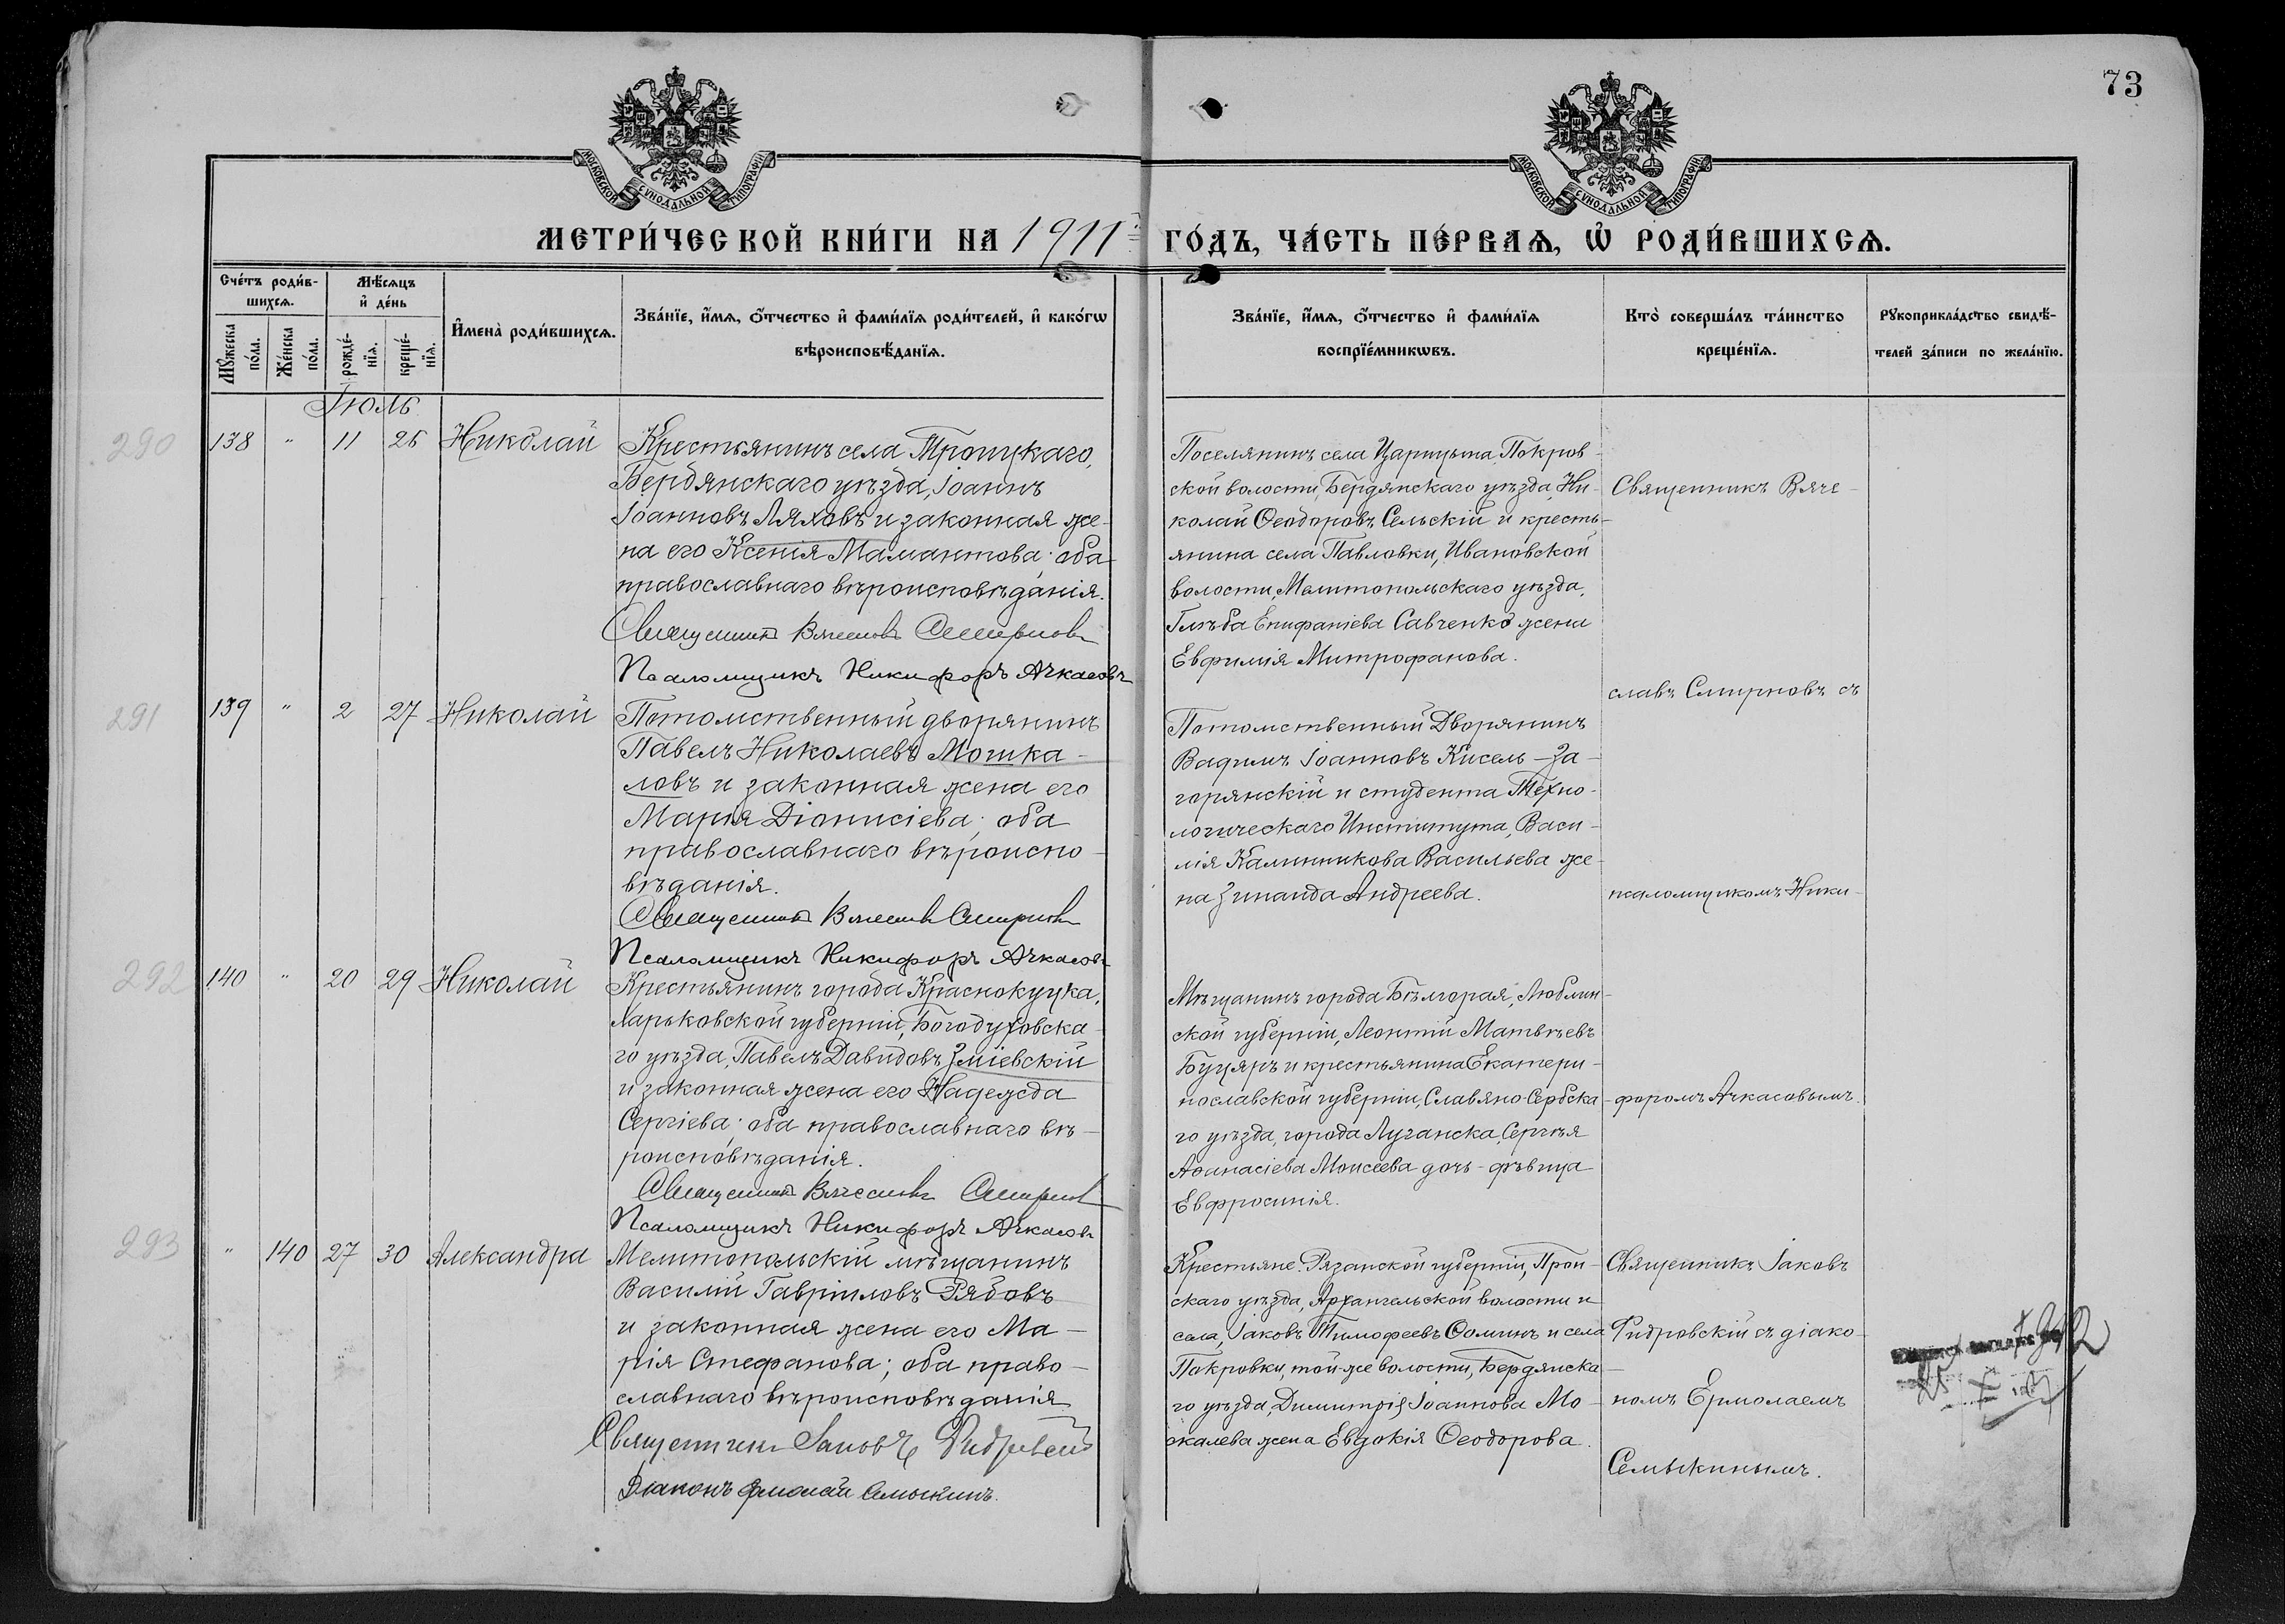 73
МОСКОВСКОЙ СѴНОДАЛЬНОЙ ТИПОГРАФІИ
МОСКОВСКОЙ СѴНОДАЛЬНОЙ ТИПОГРАФІИ
МЕТРИ́ЧЕСКОЙ КНИ́ГИ НА 1911 ГО́ДЪ, ЧА́СТЬ ПЕ́РВАѦ, Ѽ РОДИ́ВШИХСѦ.
Сче́тъ роди́в-
шихсѧ.
Мꙋ́жеска
по́ла.
Же́нска
по́ла.
Мѣ́сѧцъ
и҆ де́нь
рожде́-
нїѧ.
креще́-
нїѧ.
И҆мена̀ роди́вшихсѧ.
Зва́нїе, и҆́мѧ, ѻ҆́тчество и҆ фами́лїѧ роди́телей, и҆ како́гѡ
вѣроисповѣ́данїѧ.
Зва́нїе, и҆́мѧ, ѻ҆́тчество и҆ фами́лїѧ
воспрїе́мникѡвъ.
Кто̀ соверша́лъ та́инство
креще́нїѧ.
Рꙋкоприкла́дство свидѣ́-
телей за́писи по жела́нїю.
Іюль
290
138 " 11 25 Николай
Крестьянинъ села Троицкаго,
Бердянскаго уѣзда, Іоаннъ
Іоанновъ Ляховъ и законная же-
на его Ксенія Мамантова; оба
православнаго вѣроисповѣданія.
Священникъ Вячеславъ Смирновъ
Псаломщикъ Никифоръ Ачкасовъ
Поселянинъ села Царицына, Покров-
ской волости, Бердянскаго уѣзда, Ни-
колай Ѳеодоровъ Сельскій и кресть-
янина села Павловки, Ивановской
волости, Мелитопольскаго уѣзда,
Глѣба Епифаніева Савченко жена
Евфимія Митрофанова.
Священникъ Вяче-
славъ Смирновъ съ
псаломщикомъ Ники-
форомъ Ачкасовымъ.
291
139 " 2 27 Николай
Потомственный дворянинъ
Павелъ Николаевъ Мошка-
ловъ и законная жена его
Марія Діонисіева; оба
православнаго вѣроиспо-
вѣданія.
Священникъ Вячеславъ Смирновъ
Псаломщикъ Никифоръ Ачкасовъ
Потомственный Дворянинъ
Вадимъ Іоанновъ Кисель-За-
горянскій и студента Техно-
логическаго Института, Васи-
лія Калинникова Васильева же-
на Зинаида Андреева.
292
140 " 20 29 Николай
Крестьянинъ города Краснокуцка,
Харьковской губерніи, Богодуховска-
го уѣзда, Павелъ Давидовъ Зміевскій
и законная жена его Надежда
Сергіева; оба православнаго вѣ-
роисповѣданія.
Священникъ Вячеславъ Смирновъ
Псаломщикъ Никифоръ Ачкасовъ
Мѣщанинъ города Бѣлгорая, Люблин-
ской губерніи, Леонтій Матвѣевъ
Буцяръ и крестьянина Екатери-
нославской губерніи, Славяно-Сербска-
го уѣзда, города Луганска, Сергѣя
Аѳанасіева Моисеева дочь-дѣвица
Евфросинія.
293
" 140 27 30 Александра
Мелитопольскій мѣщанинъ
Василій Гавріиловъ Рябовъ
и законная жена его Ма-
рія Стефанова; оба право-
славнаго вѣроисповѣданія
Священникъ Іаковъ Фидровскій
Діаконъ Ермолай Семыкинъ.
Крестьяне: Рязанской губерніи, Прон-
скаго уѣзда, Архангельской волости и
села, Іаковъ Тимофеевъ Ѳоминъ и села
Покровки, той-же волости, Бердянска-
го уѣзда, Димитрія Іоаннова Мо-
жалева жена Евдокія Ѳеодорова.
Священникъ Іаковъ
Фидровскій съ діако-
номъ Ермолаемъ
Семыкинымъ.